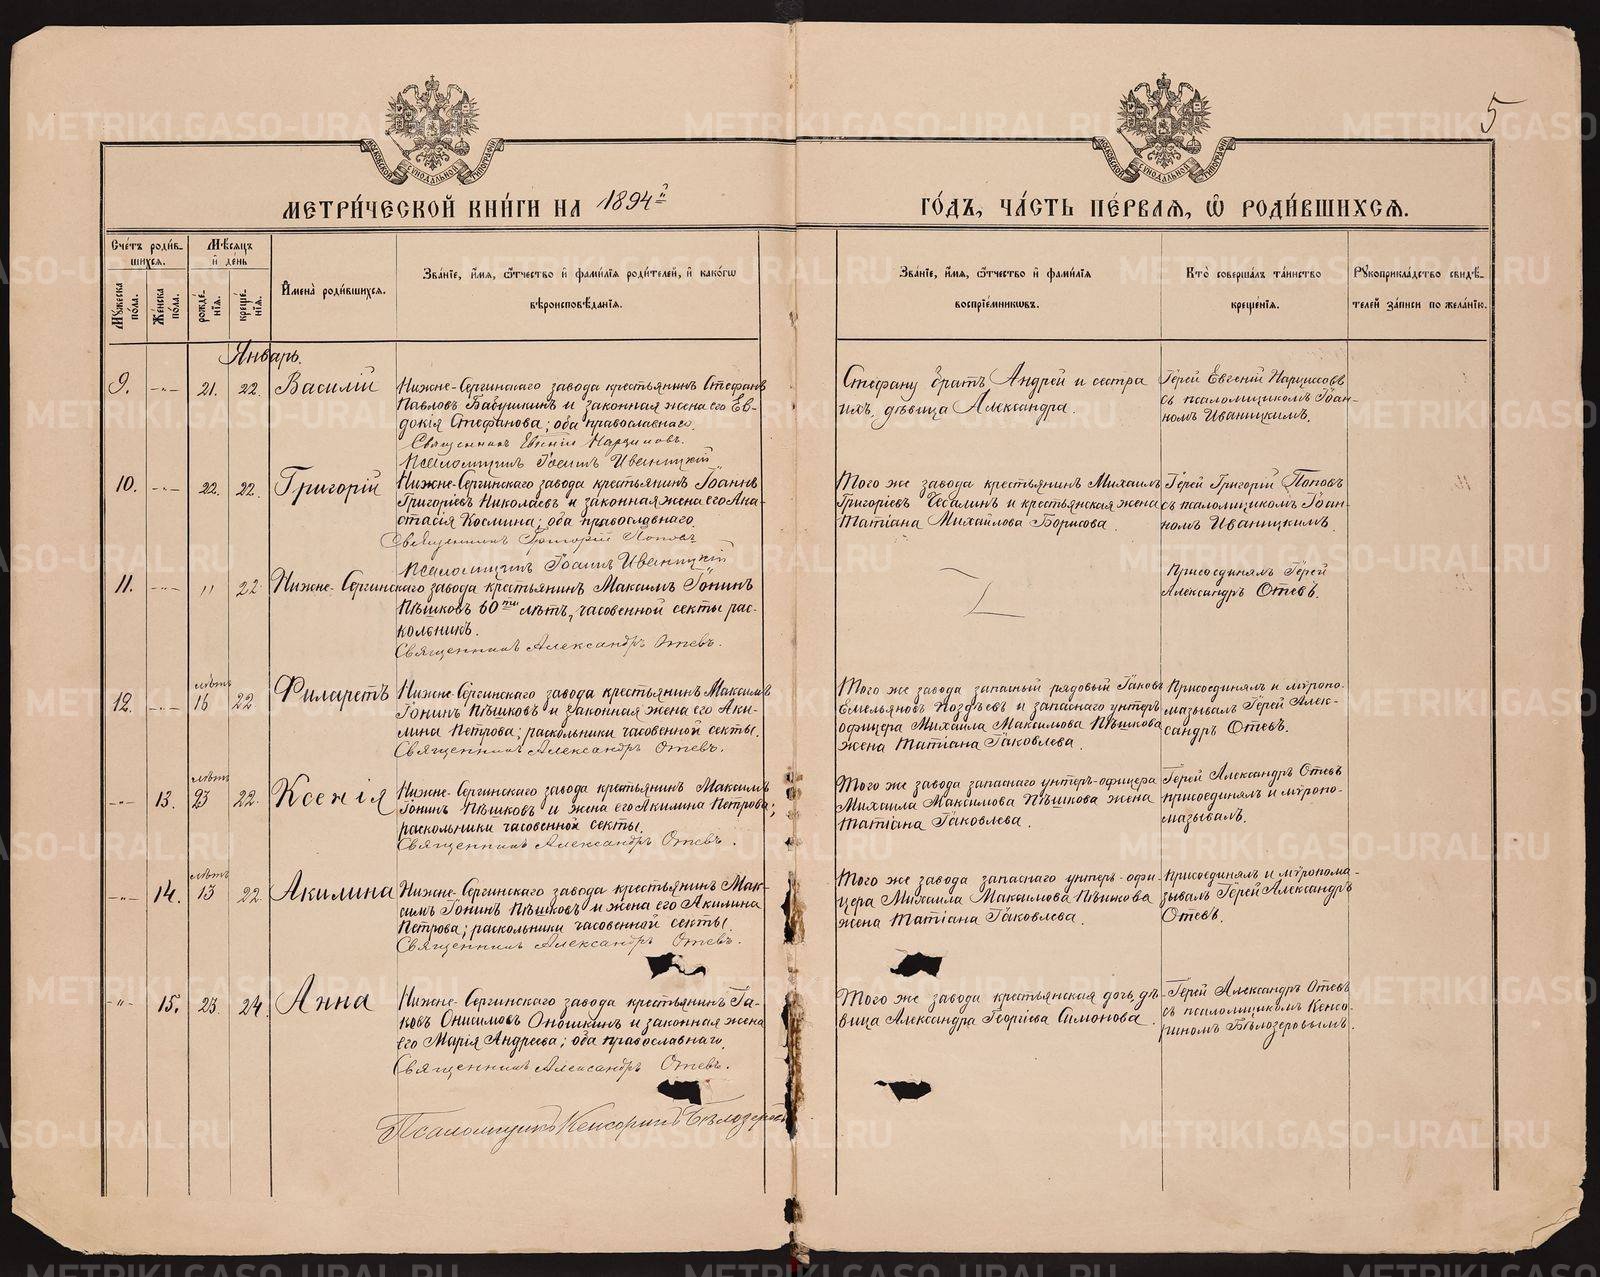 5
МОСКОВСКОЙ СѴНОДАЛЬНОЙ ТИПОГРАФІИ
МОСКОВСКОЙ СѴНОДАЛЬНОЙ ТИПОГРАФІИ
МЕТРИ́ЧЕСКОЙ КНИ́ГИ НА 1894й ГО́ДЪ, ЧА́СТЬ ПЕ́РВАѦ, Ѽ РОДИ́ВШИХСѦ.
Сче́тъ роди́в-
шихсѧ.
Мꙋ́жеска по́ла.
Же́нска по́ла.
Мѣ́сѧцъ
и҆ де́нь
рожде́-
нїѧ.
креще́-
нїѧ.
И҆мена̀ роди́вшихсѧ.
Зва́нїе, и҆́мѧ, ѻ҆́тчество и҆ фами́лїѧ роди́телей, и҆ како́гѡ
вѣроисповѣ́данїѧ.
Зва́нїе, и҆́мѧ, ѻ҆́тчество и҆ фами́лїѧ
воспрїе́мникѡвъ.
Кто̀ соверша́лъ та́инство
креще́нїѧ.
Рꙋкоприкла́дство свидѣ́-
телей за́писи по жела́нїю.
Январь.
9. -„- 21. 22. Василій
Нижне-Сергинскаго завода крестьянинъ Стефанъ
Павловъ Бабушкинъ и законная жена его Ев-
докія Стефанова; оба православнаго.
Священникъ Евгеній Нарциссовъ.
Псаломщикъ Іоаннъ Иваницкій
Стефану братъ Андрей и сестра
ихъ, дѣвица Александра.
Іерей Евгеній Нарциссовъ
съ псаломщикомъ Іоан-
номъ Иваницкимъ.
10. -„- 22. 22. Григорій
Нижне-Сергинскаго завода крестьянинъ Іоаннъ
Григоріевъ Николаевъ и законная жена его Ана-
стасія Космина; оба православнаго.
Священникъ Григорій Поповъ
Псаломщикъ Іоаннъ Иваницкій
Того же завода крестьянинъ Михаилъ
Григоріевъ Чесалинъ и крестьянская жена
Татіана Михайлова Борисова.
Іерей Григорій Поповъ
съ псаломщикомъ Іоан-
номъ Иваницкимъ.
11. -„- „ 22. Нижне-Сергинскаго завода крестьянинъ Максимъ Іонинъ
Пѣшковъ 60ти лѣтъ, часовенной секты рас-
кольникъ.
Священникъ Александръ Отевъ.
Присоединялъ Іерей
Александръ Отевъ.
12. -„- лѣтъ 16 22 Филаретъ
Нижне-Сергинскаго завода крестьянинъ Максимъ
Іонинъ Пѣшковъ и законная жена его Аки-
лина Петрова; раскольники часовенной секты.
Священникъ Александръ Отевъ.
Того же завода запасный рядовый Іаковъ
Емельяновъ Поздѣевъ и запаснаго унтеръ
офицера Михаила Максимова Пѣшкова
жена Татіана Іаковлева.
Присоединялъ и мѵропо-
мазывалъ Іерей Алек-
сандръ Отевъ.
-„- 13. лѣтъ 23 22. Ксенія
Нижне-Сергинскаго завода крестьянинъ Максимъ
Іонинъ Пѣшковъ и жена его Акилина Петрова;
раскольники часовенной секты.
Священникъ Александръ Отевъ.
Того же завода запаснаго унтеръ-офицера
Михаила Максимова Пѣшкова жена
Татіана Іаковлева.
Іерей Александръ Отевъ
присоединялъ и мѵропо-
мазывалъ.
-„- 14. лѣтъ 13 22. Акилина
Нижне-Сергинскаго завода крестьянинъ Мак-
симъ Іонинъ Пѣшковъ и жена его Акилина
Петрова; раскольники часовенной секты.
Священникъ Александръ Отевъ.
Того же завода запаснаго унтеръ-офи-
цера Михаила Максимова Пѣшкова
жена Татіана Іаковлева.
Присоединялъ и мѵропома-
зывалъ Іерей Александръ
Отевъ.
-„- 15. 23. 24. Анна
Нижне-Сергинскаго завода крестьянинъ Іа-
ковъ Онисимовъ Оношкинъ и законная жена
его Марія Андреева; оба православнаго.
Священникъ Александръ Отевъ.
Псаломщикъ Кенсоринъ Бѣлозеровъ
Того же завода крестьянская дочь, дѣ-
вица Александра Георгіева Симонова.
Іерей Александръ Отевъ
съ псаломщикомъ Кенсо-
риномъ Бѣлозеровымъ.
METRIKI.GASO-URAL.RU